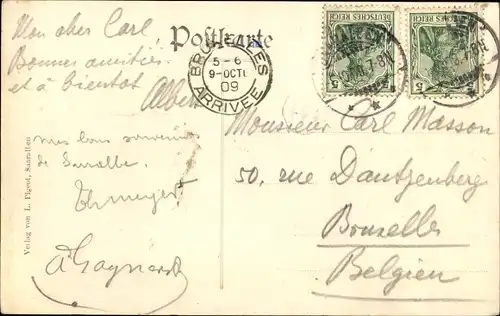 Postkarte
DEUTSCHES REICH
5
5
DEUTSCHES REICH
5
5
BRUXELLES
5-6
9-OCTE
09
ARRIVEE
Mon cher Carl
Bonnes amitiés
et à bientot
Albert
mes bons souvenirs
de Saaralbe.
Monsieur Carl Masson
50, rue Dautzenberg
Bruxelles
Belgien
Verlag von L. Pigeot, Saaralben